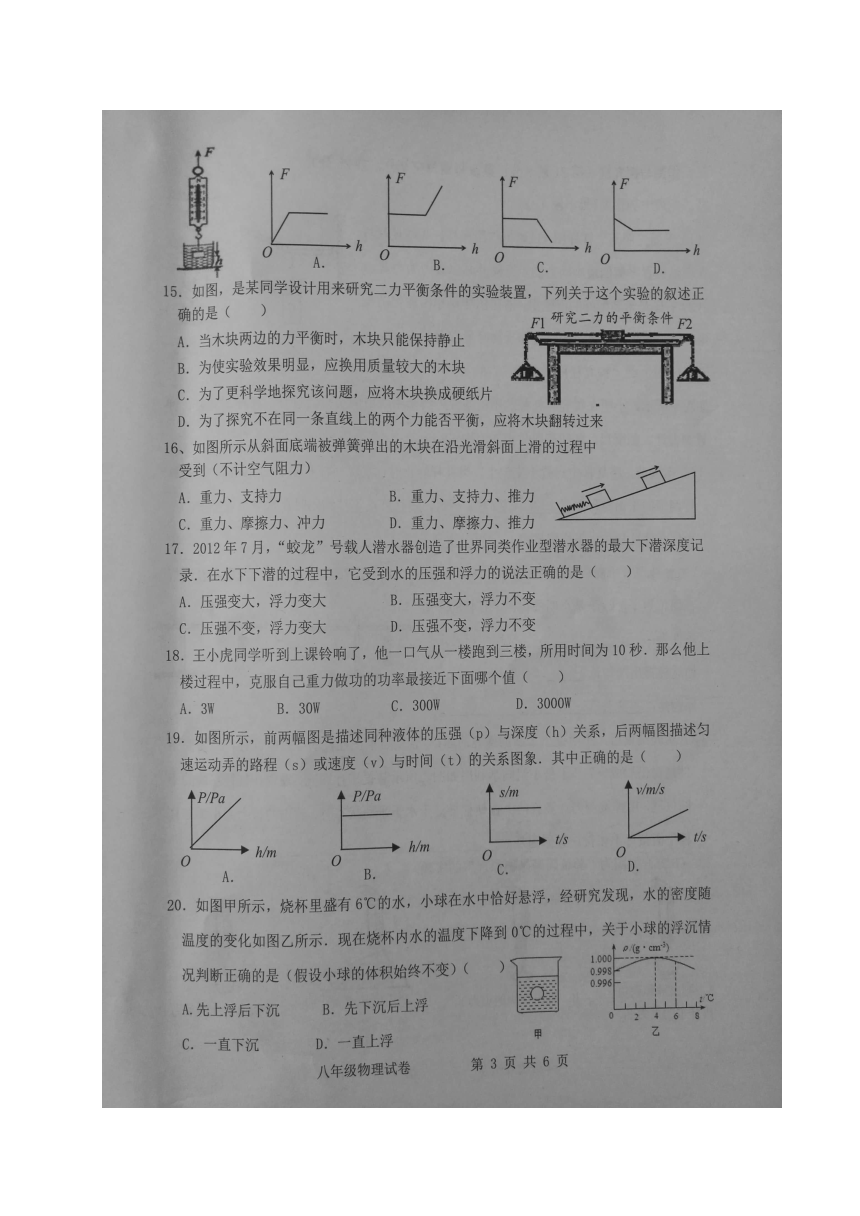 F
F
F
F
F
O
h
O
h
O
h
O
h
h
A.
B.
C.
D.
15. 如图，是某同学设计用来研究二力平衡条件的实验装置，下列关于这个实验的叙述正
确的是（　　）
F1 研究二力的平衡条件 F2
A. 当木块两边的力平衡时，木块只能保持静止
B. 为使实验效果明显，应换用质量较大的木块
C. 为了更科学地探究该问题，应将木块换成硬纸片
D. 为了探究不在同一条直线上的两个力能否平衡，应将木块翻转过来
16、如图所示从斜面底端被弹簧弹出的木块在沿光滑斜面上滑的过程中
受到（不计空气阻力）
A. 重力、支持力　　B. 重力、支持力、推力
C. 重力、摩擦力、冲力　　D. 重力、摩擦力、推力
17. 2012 年 7 月，“蛟龙”号载人潜水器创造了世界同类作业型潜水器的最大下潜深度记
录．在水下下潜的过程中，它受到水的压强和浮力的说法正确的是（　　）
A. 压强变大，浮力变大　　B. 压强变大，浮力不变
C. 压强不变，浮力变大　　D. 压强不变，浮力不变
18. 王小虎同学听到上课铃响了，他一口气从一楼跑到三楼，所用时间为 10 秒．那么他上
楼过程中，克服自己重力做功的功率最接近下面哪个值（　　）
A. 3W　　B. 30W　　C. 300W　　D. 3000W
19. 如图所示，前两幅图是描述同种液体的压强（p）与深度（h）关系，后两幅图描述匀
速运动弄的路程（s）或速度（v）与时间（t）的关系图象．其中正确的是（　　）
P/Pa
P/Pa
s/m
v/m/s
O
h/m
O
h/m
O
t/s
O
t/s
A.
B.
C.
D.
20. 如图甲所示，烧杯里盛有 6℃的水，小球在水中恰好悬浮，经研究发现，水的密度随
温度的变化如图乙所示．现在烧杯内水的温度下降到 0℃的过程中，关于小球的浮沉情
况判断正确的是（假设小球的体积始终不变）（　　）
A.先上浮后下沉　　B. 先下沉后上浮
C. 一直下沉　　D. 一直上浮
甲
ρ/(g·cm⁻³)
1.000
0.998
0.996
t/℃
0 2 4 6 8
乙
八年级物理试卷　　第 3 页 共 6 页